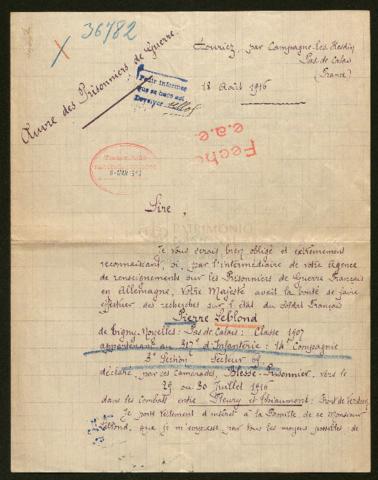 36782
Œuvre des Prisonniers de Guerre.
Gouriez, par Campagne-les-Hesdin
Pas de Calais
(France)
18 Août 1916
Fecho
e.a.e.
Sire,
Je vous serais bien obligé et extrêmement
reconnaissant, si, par l'intermédiaire de votre Agence
de renseignements sur les Prisonniers de Guerre Français
en Allemagne, Votre Majesté avait la bonté de faire
effectuer des recherches sur l'état du Soldat Français
Pierre Leblond
de Tigny-Noyelles : Pas de Calais : Classe 1907
appartenant au 317e d'Infanterie : 14e Compagnie
3e Section Secteur 09
déclaré, par ses Camarades, Blessé-Prisonnier, vers le
29 ou 30 Juillet 1916
dans les Combats entre Fleury et Thiaumont : Front de Verdun
Je porte tellement d'intérêt à la Famille de ce Monsieur
Leblond, que je m'empresse, par tous les moyens possibles, de